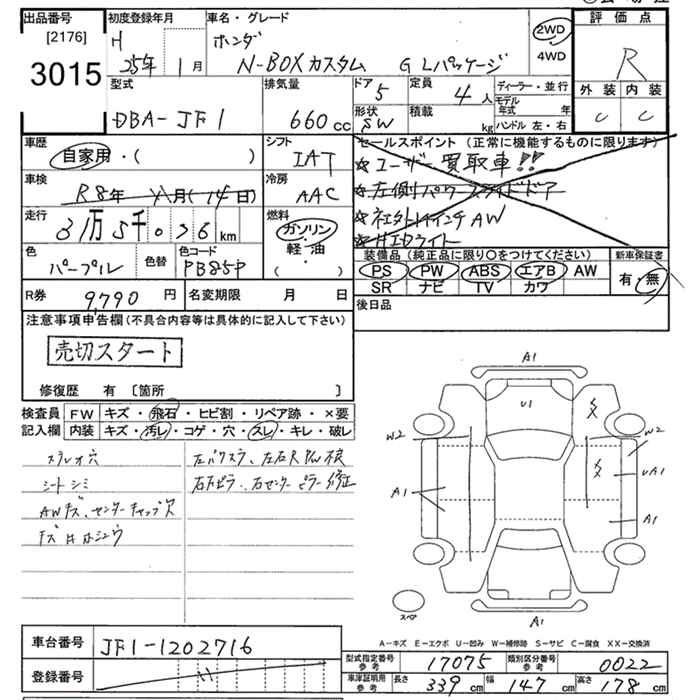 出品番号 初度登録年月 車名・グレード 評価点
[2176] H ホンダ 2WD
3015 25年 1月 N-BOXカスタム G Lパッケージ 4WD R
型式 排気量 ドア 5 定員 4人 ディーラー・並行 外装 内装
DBA-JF1 660cc 形状 SW 積載 kg モデル年式 年 C C
ハンドル 左・右
車歴 シフト セールスポイント (正常に機能するものに限ります)
自家用・( ) IAT ☆ユーザー買取車!!
車検 R8年 月(14日) 冷房 AAC ☆左側パワースライドドア
走行 3万5千036km 燃料 ☆社外14インチAW
ガソリン ☆HIDライト
色 色替 色コード 軽油 装備品 (純正品に限り○をつけてください) 新車保証書
パープル PB85P ・( ) PS PW ABS エアB AW 有・無
SR ナビ TV カワ
R券 9,790円 名変期限 月 日 後日品
注意事項申告欄 (不具合内容等は具体的に記入して下さい)
売切スタート
修復歴 有 〔箇所 〕
検査員 FW キズ・飛石・ヒビ割・リペア跡・×要
記入欄 内装 キズ・汚レ・コゲ・穴・スレ・キレ・破レ
ステレオ穴
シートシミ
AWキズ、センターキャップ欠
A1
U1
W2 W2
A1 UA1
A1
A1
スペア
A-キズ E-エクボ U-凹み W-補修跡 S-サビ C-腐食 XX-交換済
車台番号 JF1-1202716 型式指定番号 参考 17075 類別区分番号 参考 0022
登録番号 車庫証明用 参考 長さ 339cm 幅 147cm 高さ 178cm